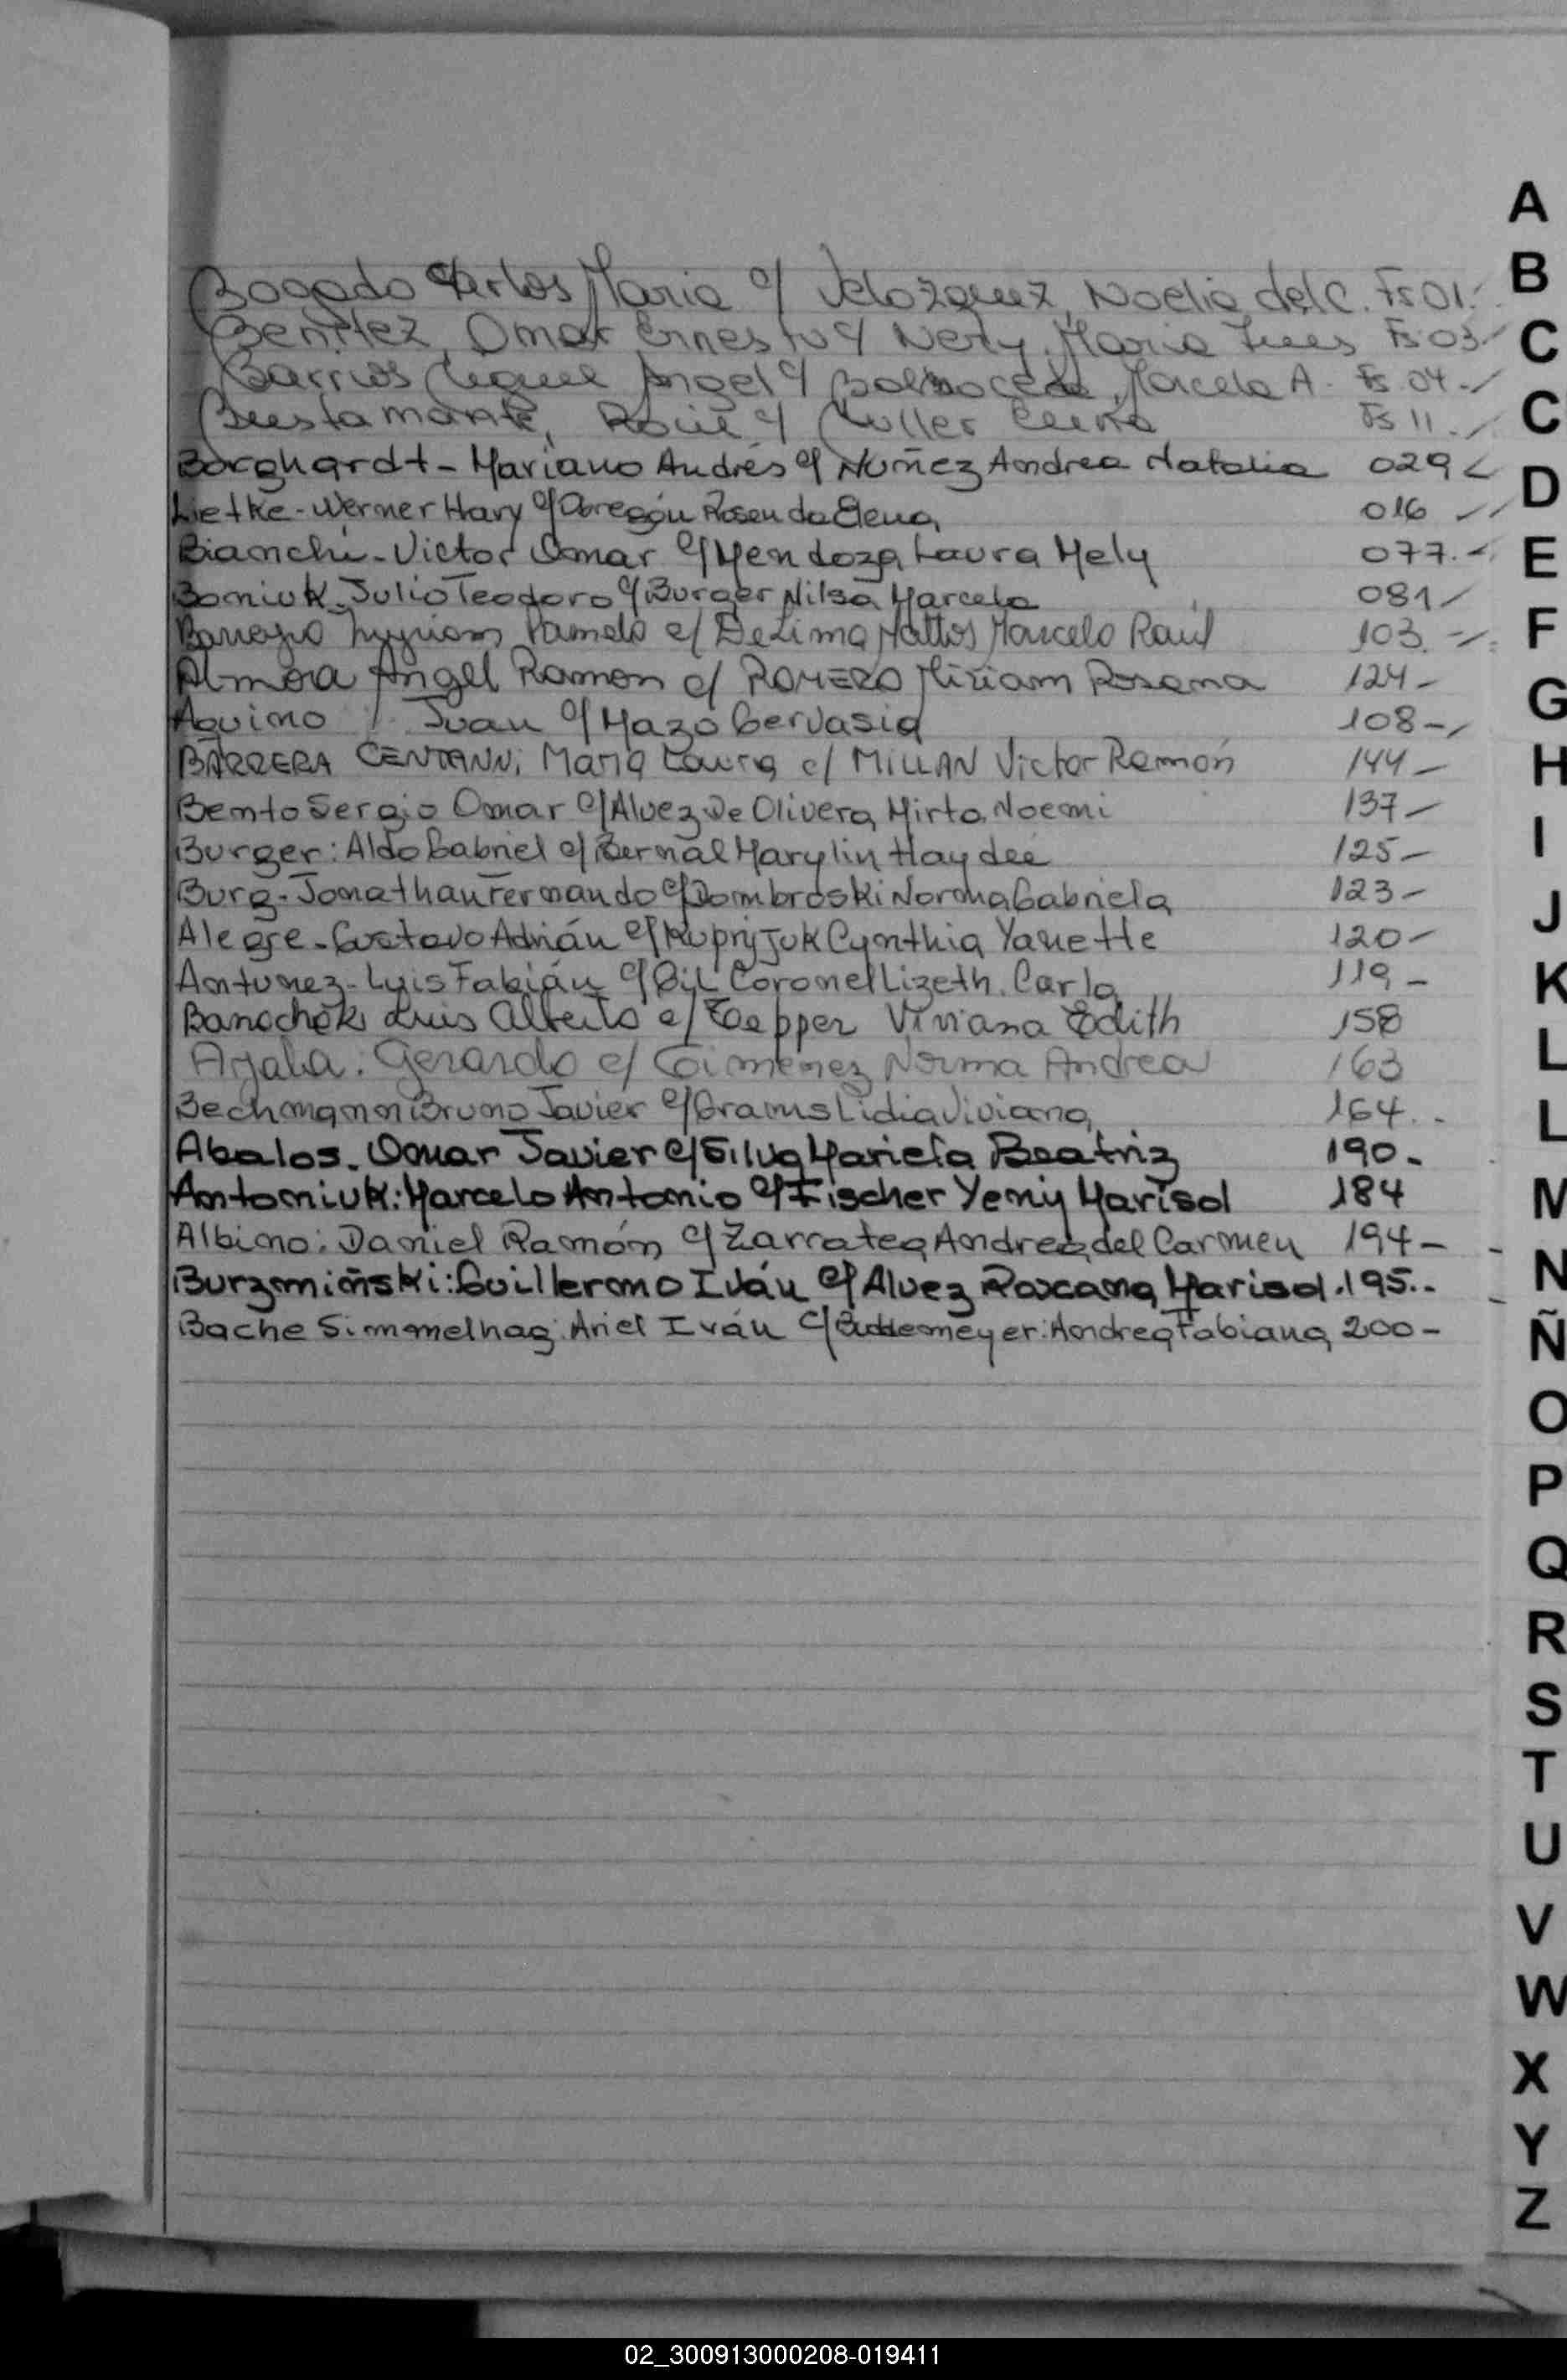 Bogado Carlos Maria c/ Velozquez, Noelia del C. Fs 01.
Benitez, Omar Ernesto c/ Nery, Maria Ines Fs 03
Barrios Miguel Angel c/ Balmoceda, Marcela A. Fs. 04.-
Bustamante, Raúl c/ Muller Fs 11.
Borghardt - Mariano Andrés c/ Nuñez Andrea Natalia 029
Lietke - Werner Hary c/ Obregón Rosenda Elena 016
Bianchi - Victor Omar c/ Mendoza Laura Mely 077.-
Boniuk - Julio Teodoro c/ Burger Nilsa Marcela 081
Barrazo Myriam Pamela c/ De Lima Mattos Marcelo Raúl 103.-
Almora Angel Ramon c/ ROMERO Miriam Rosana 124-
Aquino Juan c/ Mazo Gervasia 108-
BARRERA CENTANNi Maria Laura c/ MILLAN Victor Ramón 144-
Bento Sergio Omar c/ Alvez De Olivera Mirta Noemi 137-
Burger: Aldo Gabriel c/ Bernal Marylin Haydée 125-
Burg - Jonathan Fernando c/ Dombroski Norma Gabriela 123-
Alegre - Gustavo Adrián c/ Kuprijuk Cynthia Yanette 120-
Antunez - Luis Fabián c/ Gil Coronel Lizeth. Carla 119-
Banocheki Luis Alberto c/ Tepper Viviana Edith 158
Ayala: Gerardo c/ Gimenez Norma Andrea 163
Bechmann Bruno Javier c/ Grams Lidia Viviana 164..
Abalos. Omar Javier c/ Silva Mariela Beatriz 190-
Antoniuk: Marcelo Antonio c/ Fischer Yeny Marisol 184
Albino: Daniel Ramón c/ Zarratea Andrea del Carmen 194-
Burzmiñski: Guillermo Iván c/ Alvez Roxana Marisol. 195..
Bache Simmelhag: Ariel Iván c/ Buddemeyer: Andrea Fabiana 200-
A
B
C
C
D
E
F
G
H
I
J
K
L
L
M
N
Ñ
O
P
Q
R
S
T
U
V
W
X
Y
Z
02_300913000208-019411